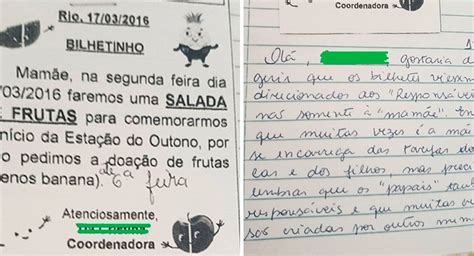 Rio, 17/03/2016
BILHETINHO
Mamãe, na segunda feira dia
/03/2016 faremos uma SALADA
E FRUTAS para comemorarmos
nício da Estação do Outono, por
o pedimos a doação de frutas
enos banana). até 6ª feira
Atenciosamente,
Coordenadora
Coordenadora
Olá, gostaria d
gerir que os bilhetes viess
direcionados aos "Responsáve
não somente à "mamãe". En
que muitas vezes é a mã
se encarrega das tarefas do
cas e dos filhos, mas prec
lembrar que os "papais" ta
responsáveis e que muitas v
sos criadas por outros mem